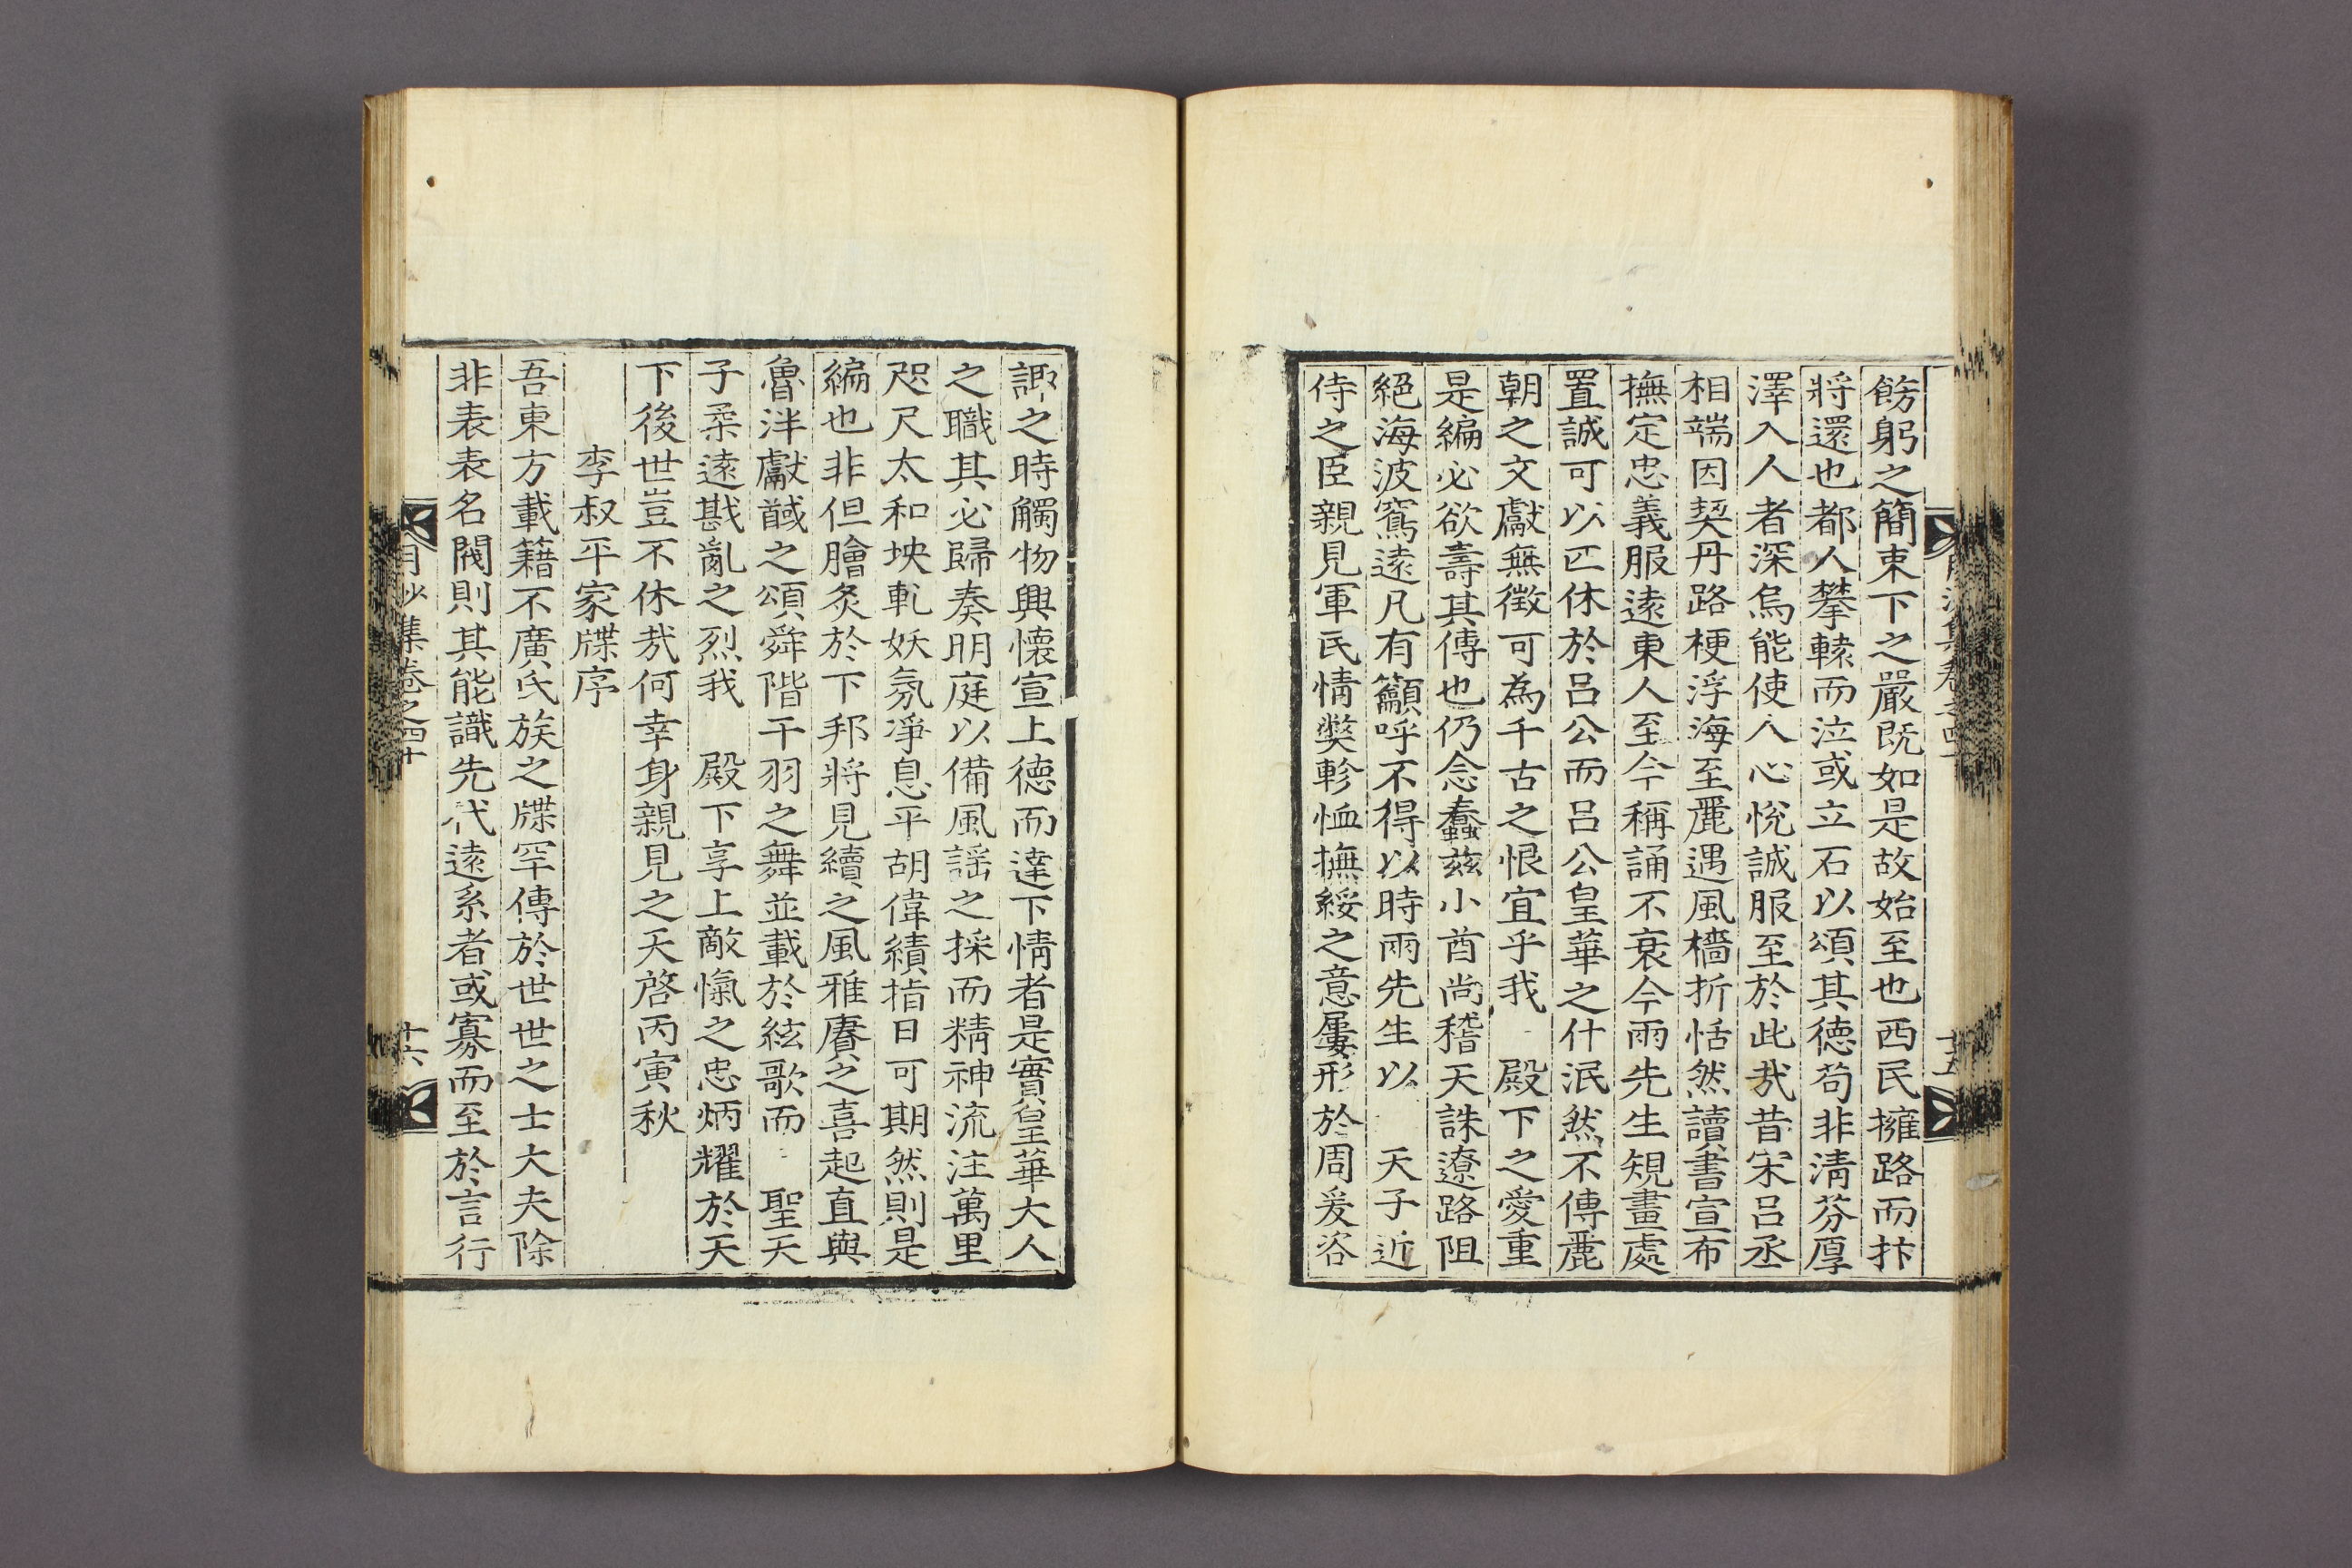 飭躬之簡東下之嚴旣如是故始至也西民擁路而抃
將還也都人攀轅而泣或立石以頌其德苟非淸芬厚
澤入人者深烏能使人心悅誠服至於此㢤昔宋呂丞
相端因契丹路梗浮海至麗遇風檣折恬然讀書宣布
撫定忠義服遠東人至今稱誦不衰今兩先生䂓畫處
置誠可以匹休於呂公而呂公皇華之什泯然不傳麗
朝之文獻無徵可為千古之恨宜乎我 殿下之愛重
是編必欲壽其傳也仍念蠢玆小酋尙稽天誅遼路阻
絕海波窵遠凡有籲呼不得以時兩先生以 天子近
侍之臣親見軍民情獘軫恤撫綏之意屢形於周爰咨
諏之時觸物興懷宣上德而達下情者是實皇華大人
之職其必歸奏明庭以備風謡之採而精神流注萬里
咫尺太和坱軋妖氛淨息平胡偉績指日可期然則是
編也非但膾炙於下邦將見續之風雅賡之喜起直與
魯泮獻馘之頌舜階干羽之舞並載於絃歌而 聖天
子柔遠戡亂之烈我 殿下享上敵愾之忠炳耀於天
下後世豈不休㢤何幸身親見之天啓丙寅秋
李叔平家牒序
吾東方載籍不廣氏族之牒罕傳於世世之士大夫除
非表表名閥則其能識先代遠系者或寡而至於言行
月沙集卷之四十
十六